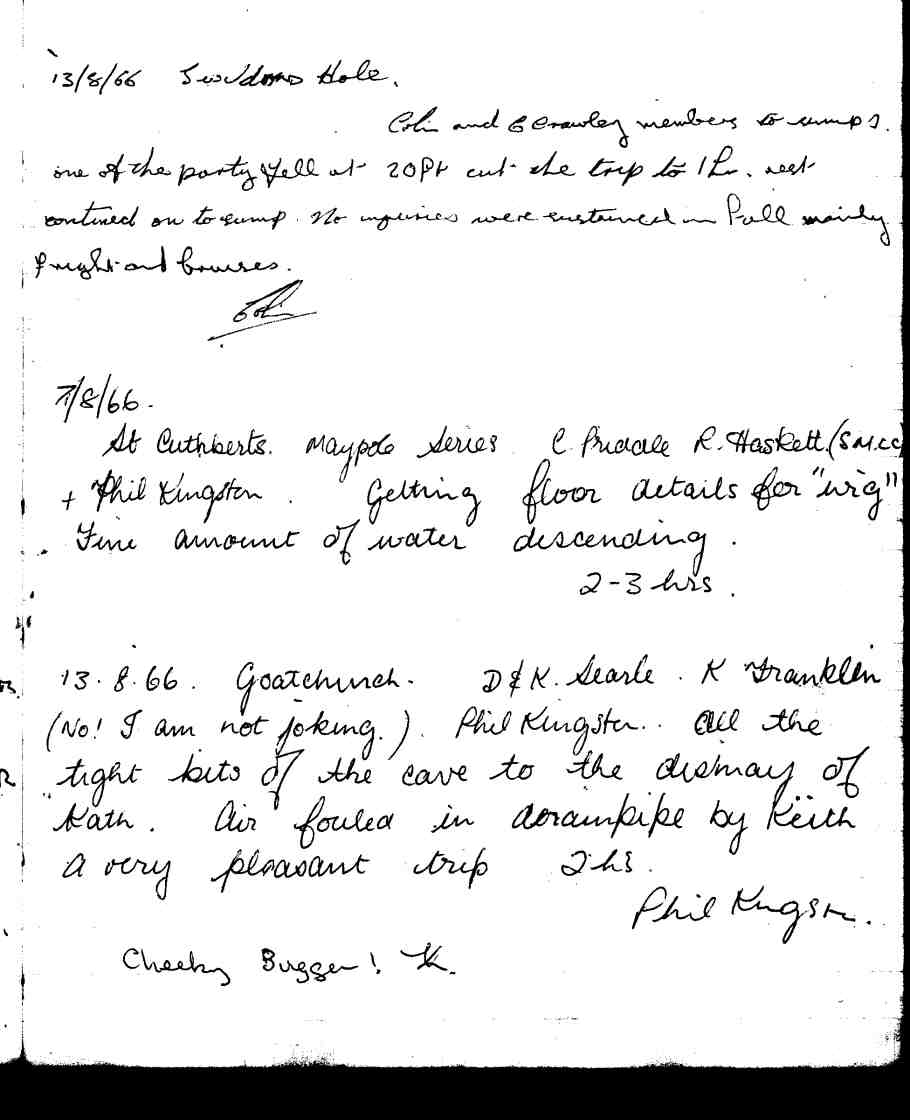 13/8/66 Swildons Hole.
Colin and G Crawley members to sump 1.
one of the party fell at 20ft cut the trip to 1 hr. rest
contined on to sump. No injuries were sustained in fall mainly
fright and bruises.
Colin
7/8/66.
St Cuthberts. Maypole Series C. Priddle R. Haskett. (S.M.C.C)
+ Phil Kingston. Getting floor details for "wig"
Fine amount of water descending.
2-3 hrs.
13.8.66. Goatchurch. D & K. Searle. K Franklin
(No! I am not joking.). Phil Kingston.. All the
tight bits of the cave to the dismay of
Kath. Air fouled in drainpipe by Keith
A very pleasant trip 2 hs.
Phil Kingston.
Cheeky Bugger! K.